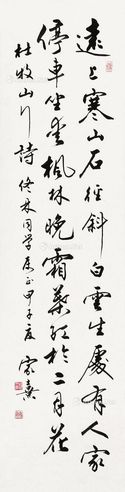 遠上寒山石徑斜白雲生處有人家
停車坐愛楓林晚霜葉紅於二月花
杜牧山行詩 佟林同学属正甲子夏 家熹